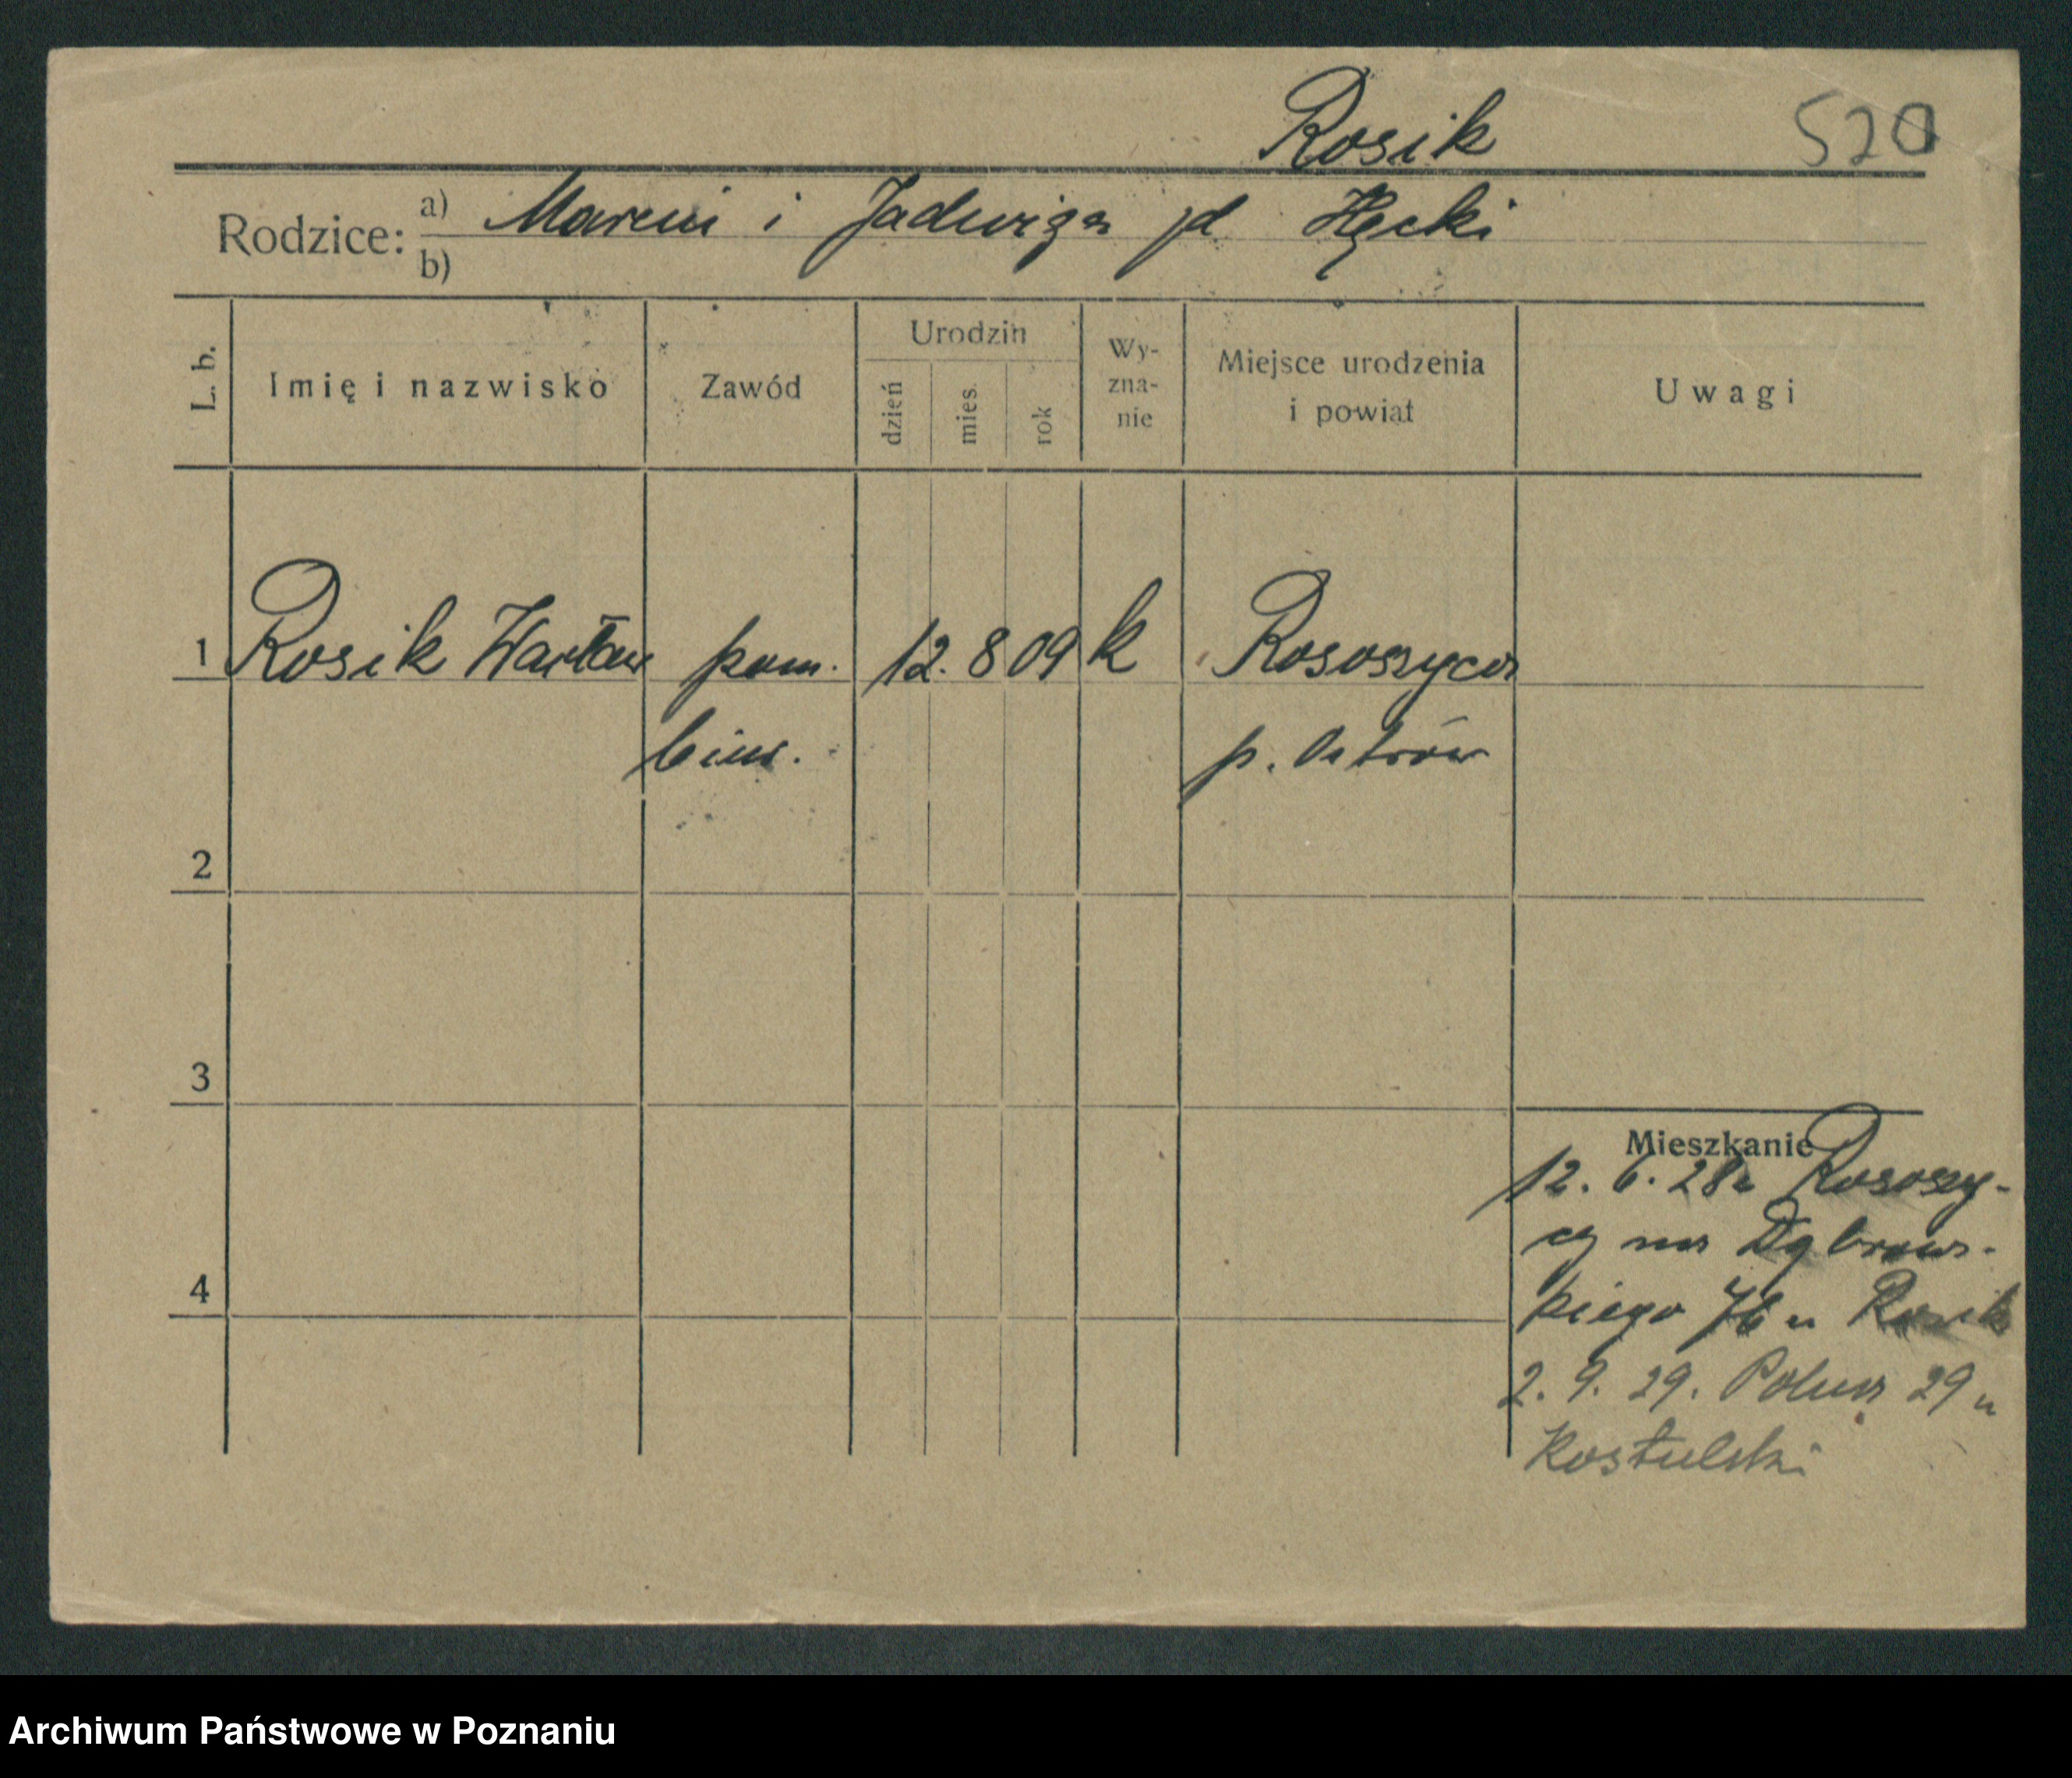 Rosik 520
Rodzice: a) Marcin i Jadwiga
b)
L. b. Imię i nazwisko Zawód Urodzin dzień mies. rok Wy-zna-nie Miejsce urodzenia i powiat Uwagi
1 Rosik Wacław pom. 12. 8 09 k Rososzyca
biur. p. Ostrów
2
3
4
Mieszkanie
12. 6. 28 z Rososzy-
cy na Dąbrow-
skiego 76 u Rosik
2. 9. 29. Polna 29 u
Kostulski
Archiwum Państwowe w Poznaniu